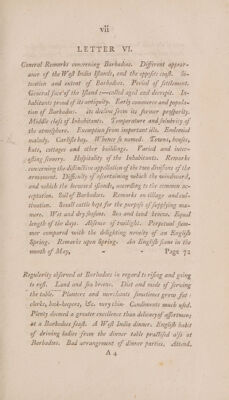 vii
LETTER VI.
General Remarks concerning Barbadoes. Different appear-
ance of the West India Islands, and the opposite coast. Si-
tuation and extent of Barbadoes. Period of settlement.
General face of the Island :—called aged and decrepit. In-
habitants proud of its antiquity. Early commerce and popula-
tion of Barbadoes. its decline from its former prosperity.
Middle class of Inhabitants. Temperature and salubrity of
the atmosphere. Exemption from important ills. Endemial
malady. Carlisle bay. Whence so named. Towns, houses,
huts, cottages and other buildings. Varied and inter-
esting scenery. Hospitality of the Inhabitants. Remarks
concerning the distinctive appellation of the two divisions of the
armament. Difficulty of ascertaining which the windward,
and which the leeward islands, according to the common ac-
ceptation. Soil of Barbadoes. Remarks on tillage and cul-
tivation. Small cattle kept for the purpose of supplying ma-
nure. Wet and dry seasons. Sea and land breeze. Equal
length of the days. Absence of twilight. Perpetual sum-
mer compared with the delighting novelty of an English
Spring. Remarks upon Spring. An English scene in the
month of May, - - Page 72
Regularity observed at Barbadoes in regard to rising and going
to rest. Land and sea breeze. Diet and mode of serving
the table. Planters and merchants sometimes grow fat:
clerks, book-keepers, &c. very thin. Condiments much used.
Plenty deemed a greater excellence than delicacy of assortment,
at a Barbadoes feast. A West India dinner. English habit
of driving ladies from the dinner table practised also at
Barbadoes. Bad arrangement of dinner parties. Attend.
A 4